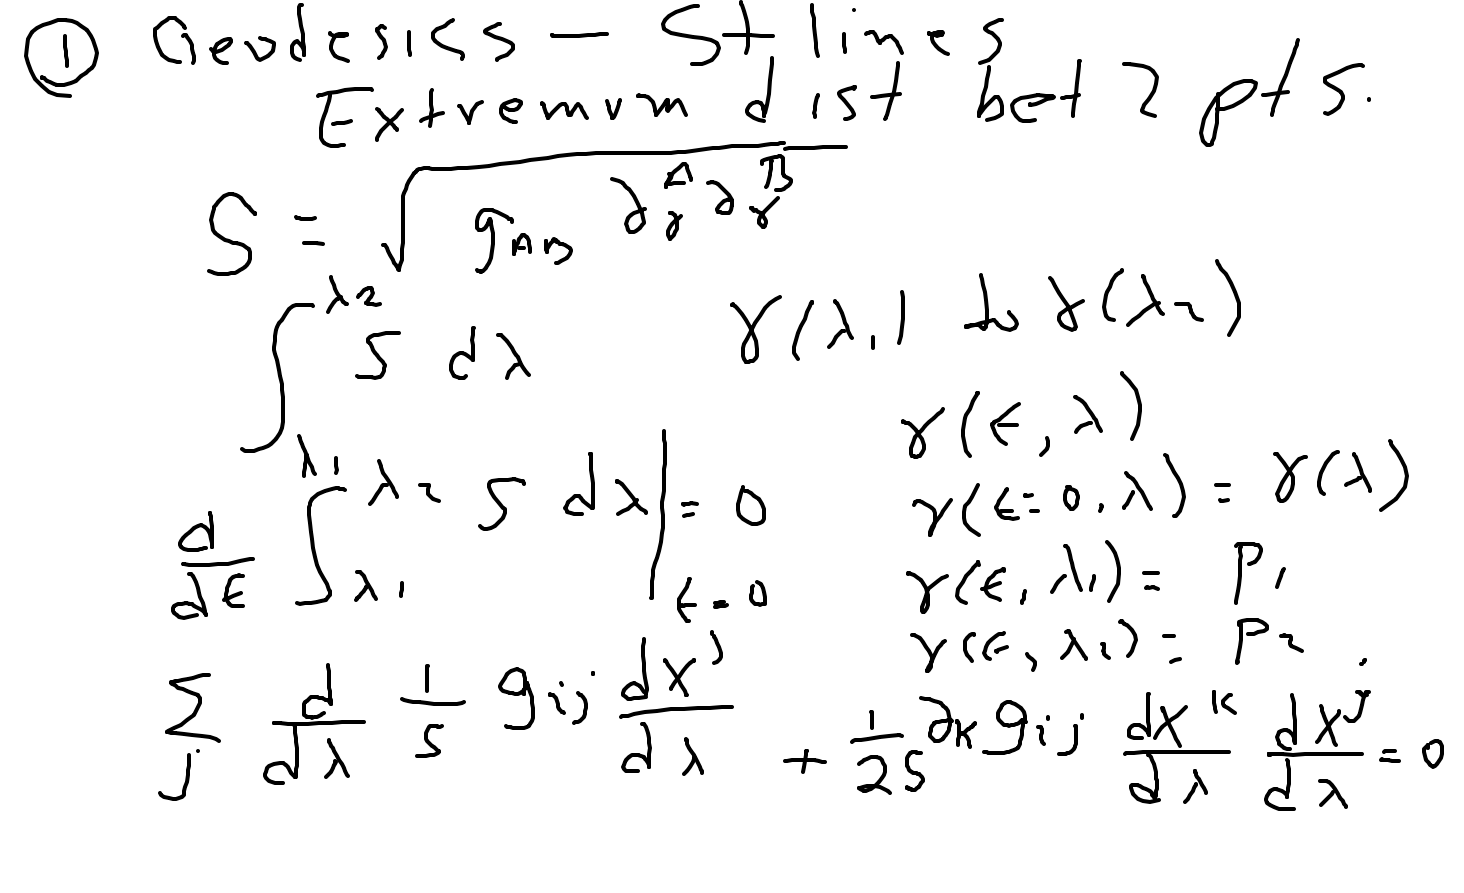 ① Geodesics — St lines
Extremum dist bet 2 pts.
S = √(g_AB ∂_γ^A ∂_γ^B)
∫_λ1^λ2 S dλ γ(λ₁) to γ(λ₂)
γ(ϵ, λ)
d/dϵ ∫_λ1^λ2 S dλ |_ϵ=0 = 0 γ(ϵ=0, λ) = γ(λ)
γ(ϵ, λ₁) = P₁
γ(ϵ, λ₂) = P₂
Σ_j d/dλ 1/S g_ij dx^j/dλ + 1/2S ∂_k g_ij dx^k/dλ dx^j/dλ = 0